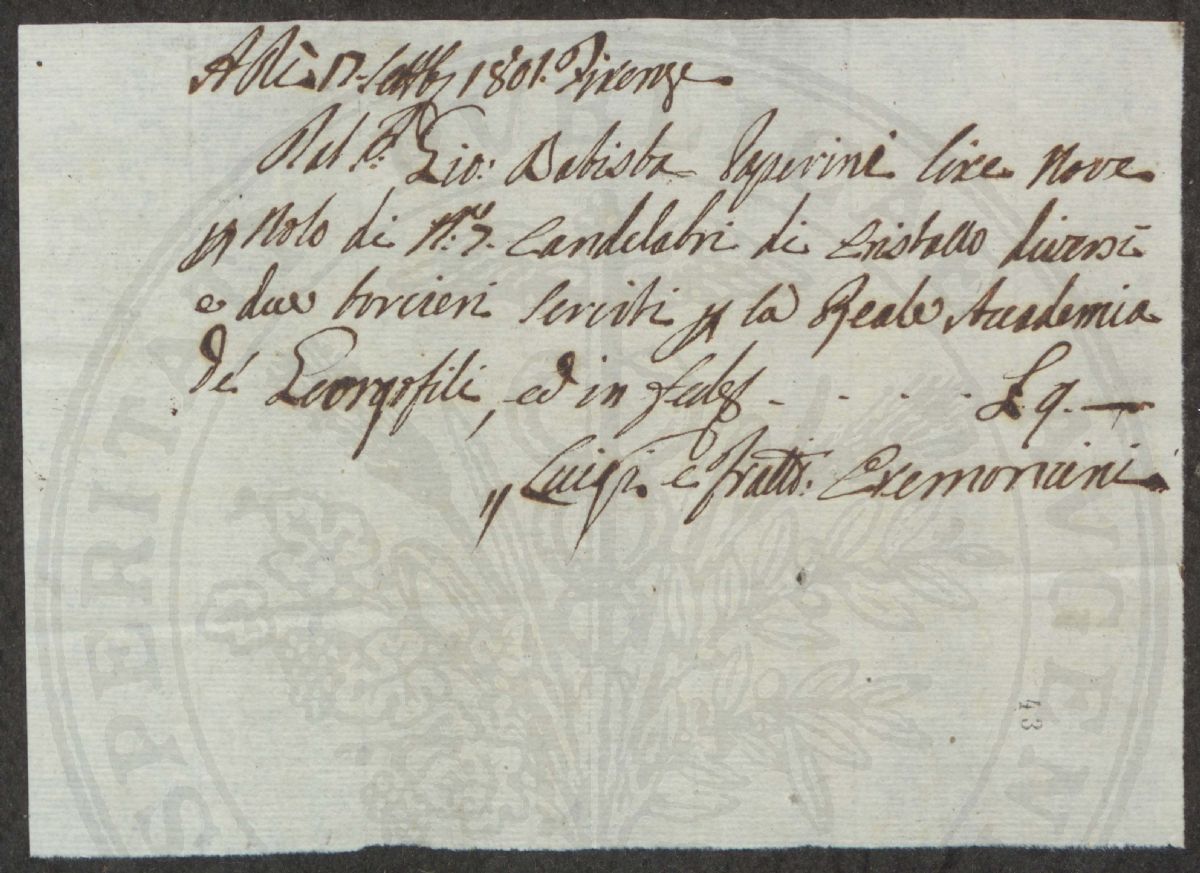 Adì 17 Settbe 1801. Firenze
Dal Sr. Gio: Batista Paperini lire Nove
p Nolo di No. 7. Candelabri di Cristallo diversi
e due torcieri Serviti p la Reale Accademia
de' Georgofili, ed in fede - . . . . £ 9. —
Luigi e Fratto. Cremoncini
43
SPERITA
PUBLICA
AUGE